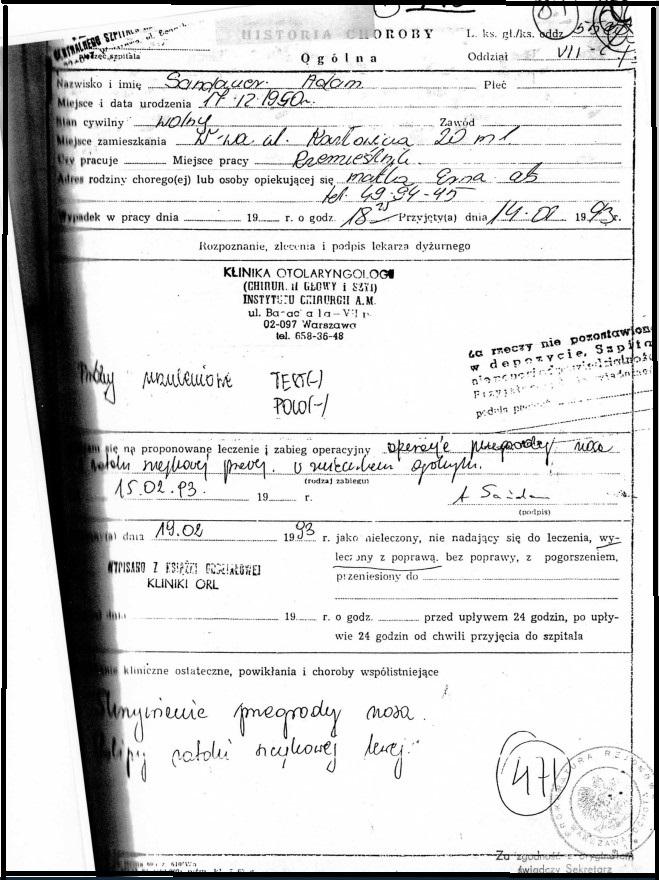 CENTRALNEGO SZPITALA
HISTORIA CHOROBY
L. ks. gł./ks. oddz.
Pieczęć szpitala
Ogólna
Oddział VII-
Nazwisko i imię Sandauer Adam Płeć
Miejsce i data urodzenia 17.12.1950r.
Stan cywilny wolny Zawód
Miejsce zamieszkania W-wa ul. Karłowicza 20 m 1.
Czy pracuje Miejsce pracy Rzemieślnik.
Adres rodziny chorego(ej) lub osoby opiekującej się matka Erna
tel. 49-94-45
Wypadek w pracy dnia 19 r. o godz. 18 25 Przyjęty(a) dnia 14.02 1993r.
Rozpoznanie, zlecenia i podpis lekarza dyżurnego
KLINIKA OTOLARYNGOLOGI
(CHIRUR. II GŁOWY i SZYI)
INSTYTUTU CHIRURGII A.M.
ul. Banacha 1a
02-097 Warszawa
tel. 658-36-48
Za rzeczy nie pozostawione
w depozycie, Szpital
nie odpowiedzialności
Próby uczuleniowe TEXT(-)
POLO(-)
się na proponowane leczenie i zabieg operacyjny operację przegrody nosa
zatoki szczękowej prawej. w znieczuleniu ogólnym.
(rodzaj zabiegu)
15.02.93. 19 r.
(podpis)
dnia 19.02 1993 r. jako nieleczony, nie nadający się do leczenia, wy-
leczony z poprawą, bez poprawy, z pogorszeniem,
WYPISANO Z KSIĄŻKI ODDZIAŁOWEJ
KLINIKI ORL
przeniesiony do
dnia 19 r. o godz. przed upływem 24 godzin, po upły-
wie 24 godzin od chwili przyjęcia do szpitala
kliniczne ostateczne, powikłania i choroby współistniejące
Skrzywienie przegrody nosa.
Polipy zatoki szczękowej lewej.
471
PROKURATURA REJONOWA
WARSZAWA
Za zgodność z oryginałem
świadczy Sekretarz